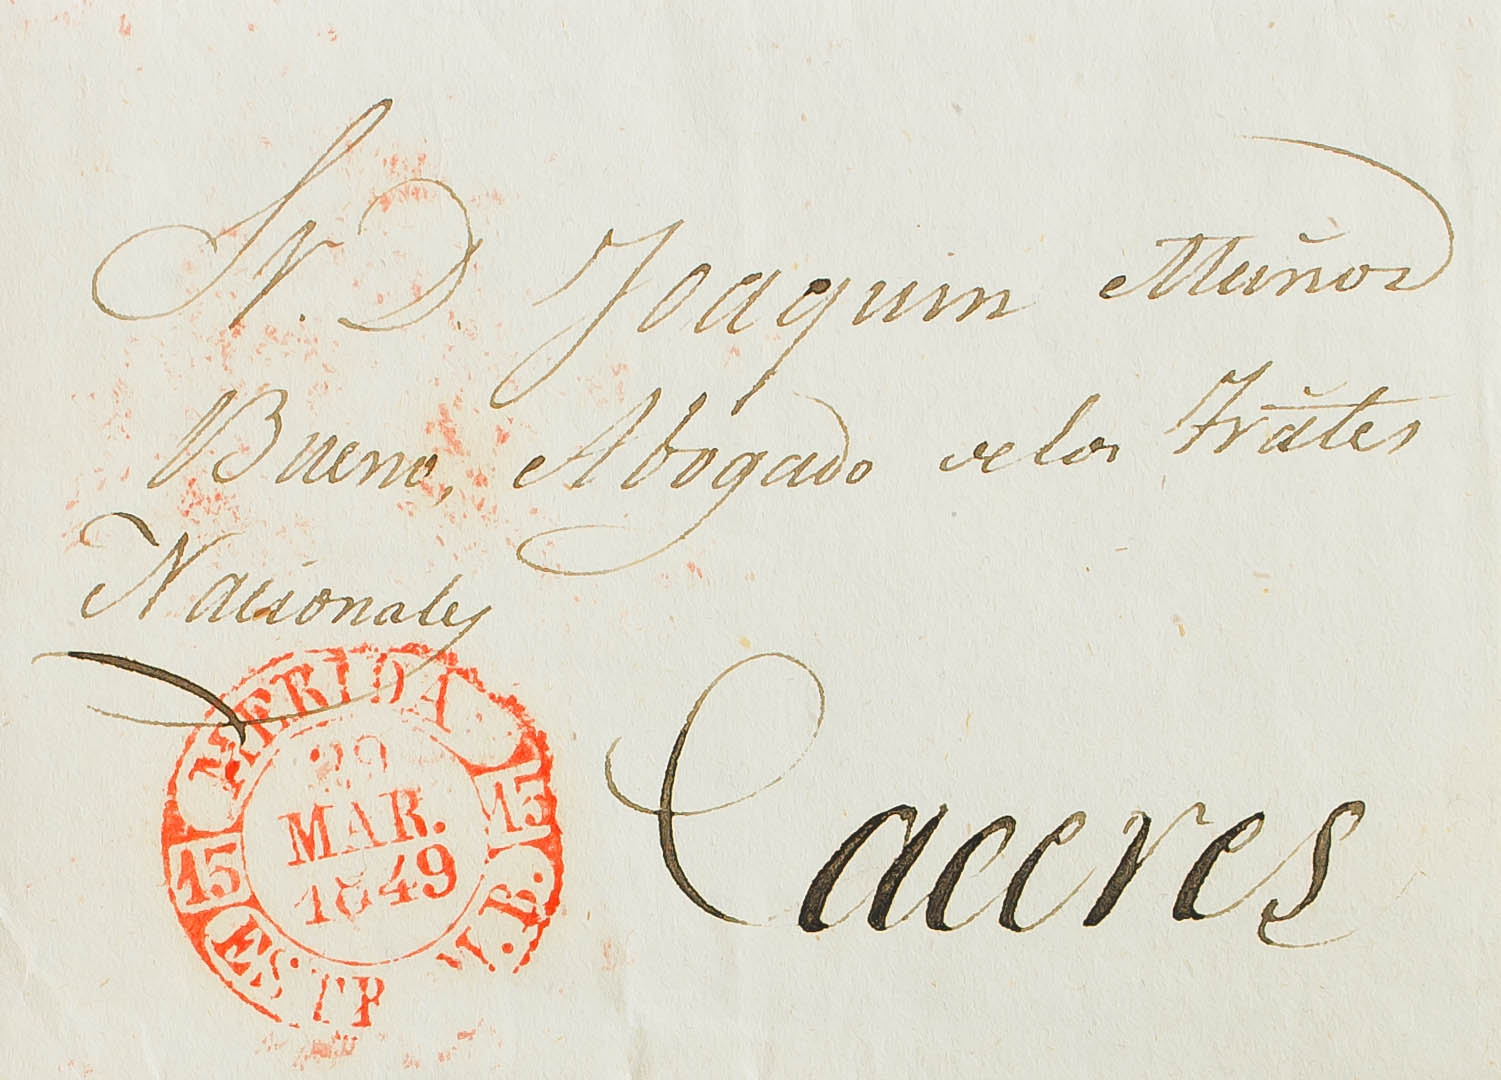 Sr. D. Joaquin Muñoz
Bueno, Abogado de los Trātes
Nacionales
Caceres
MERIDA
15 15
29
MAR.
1849
ESTR.